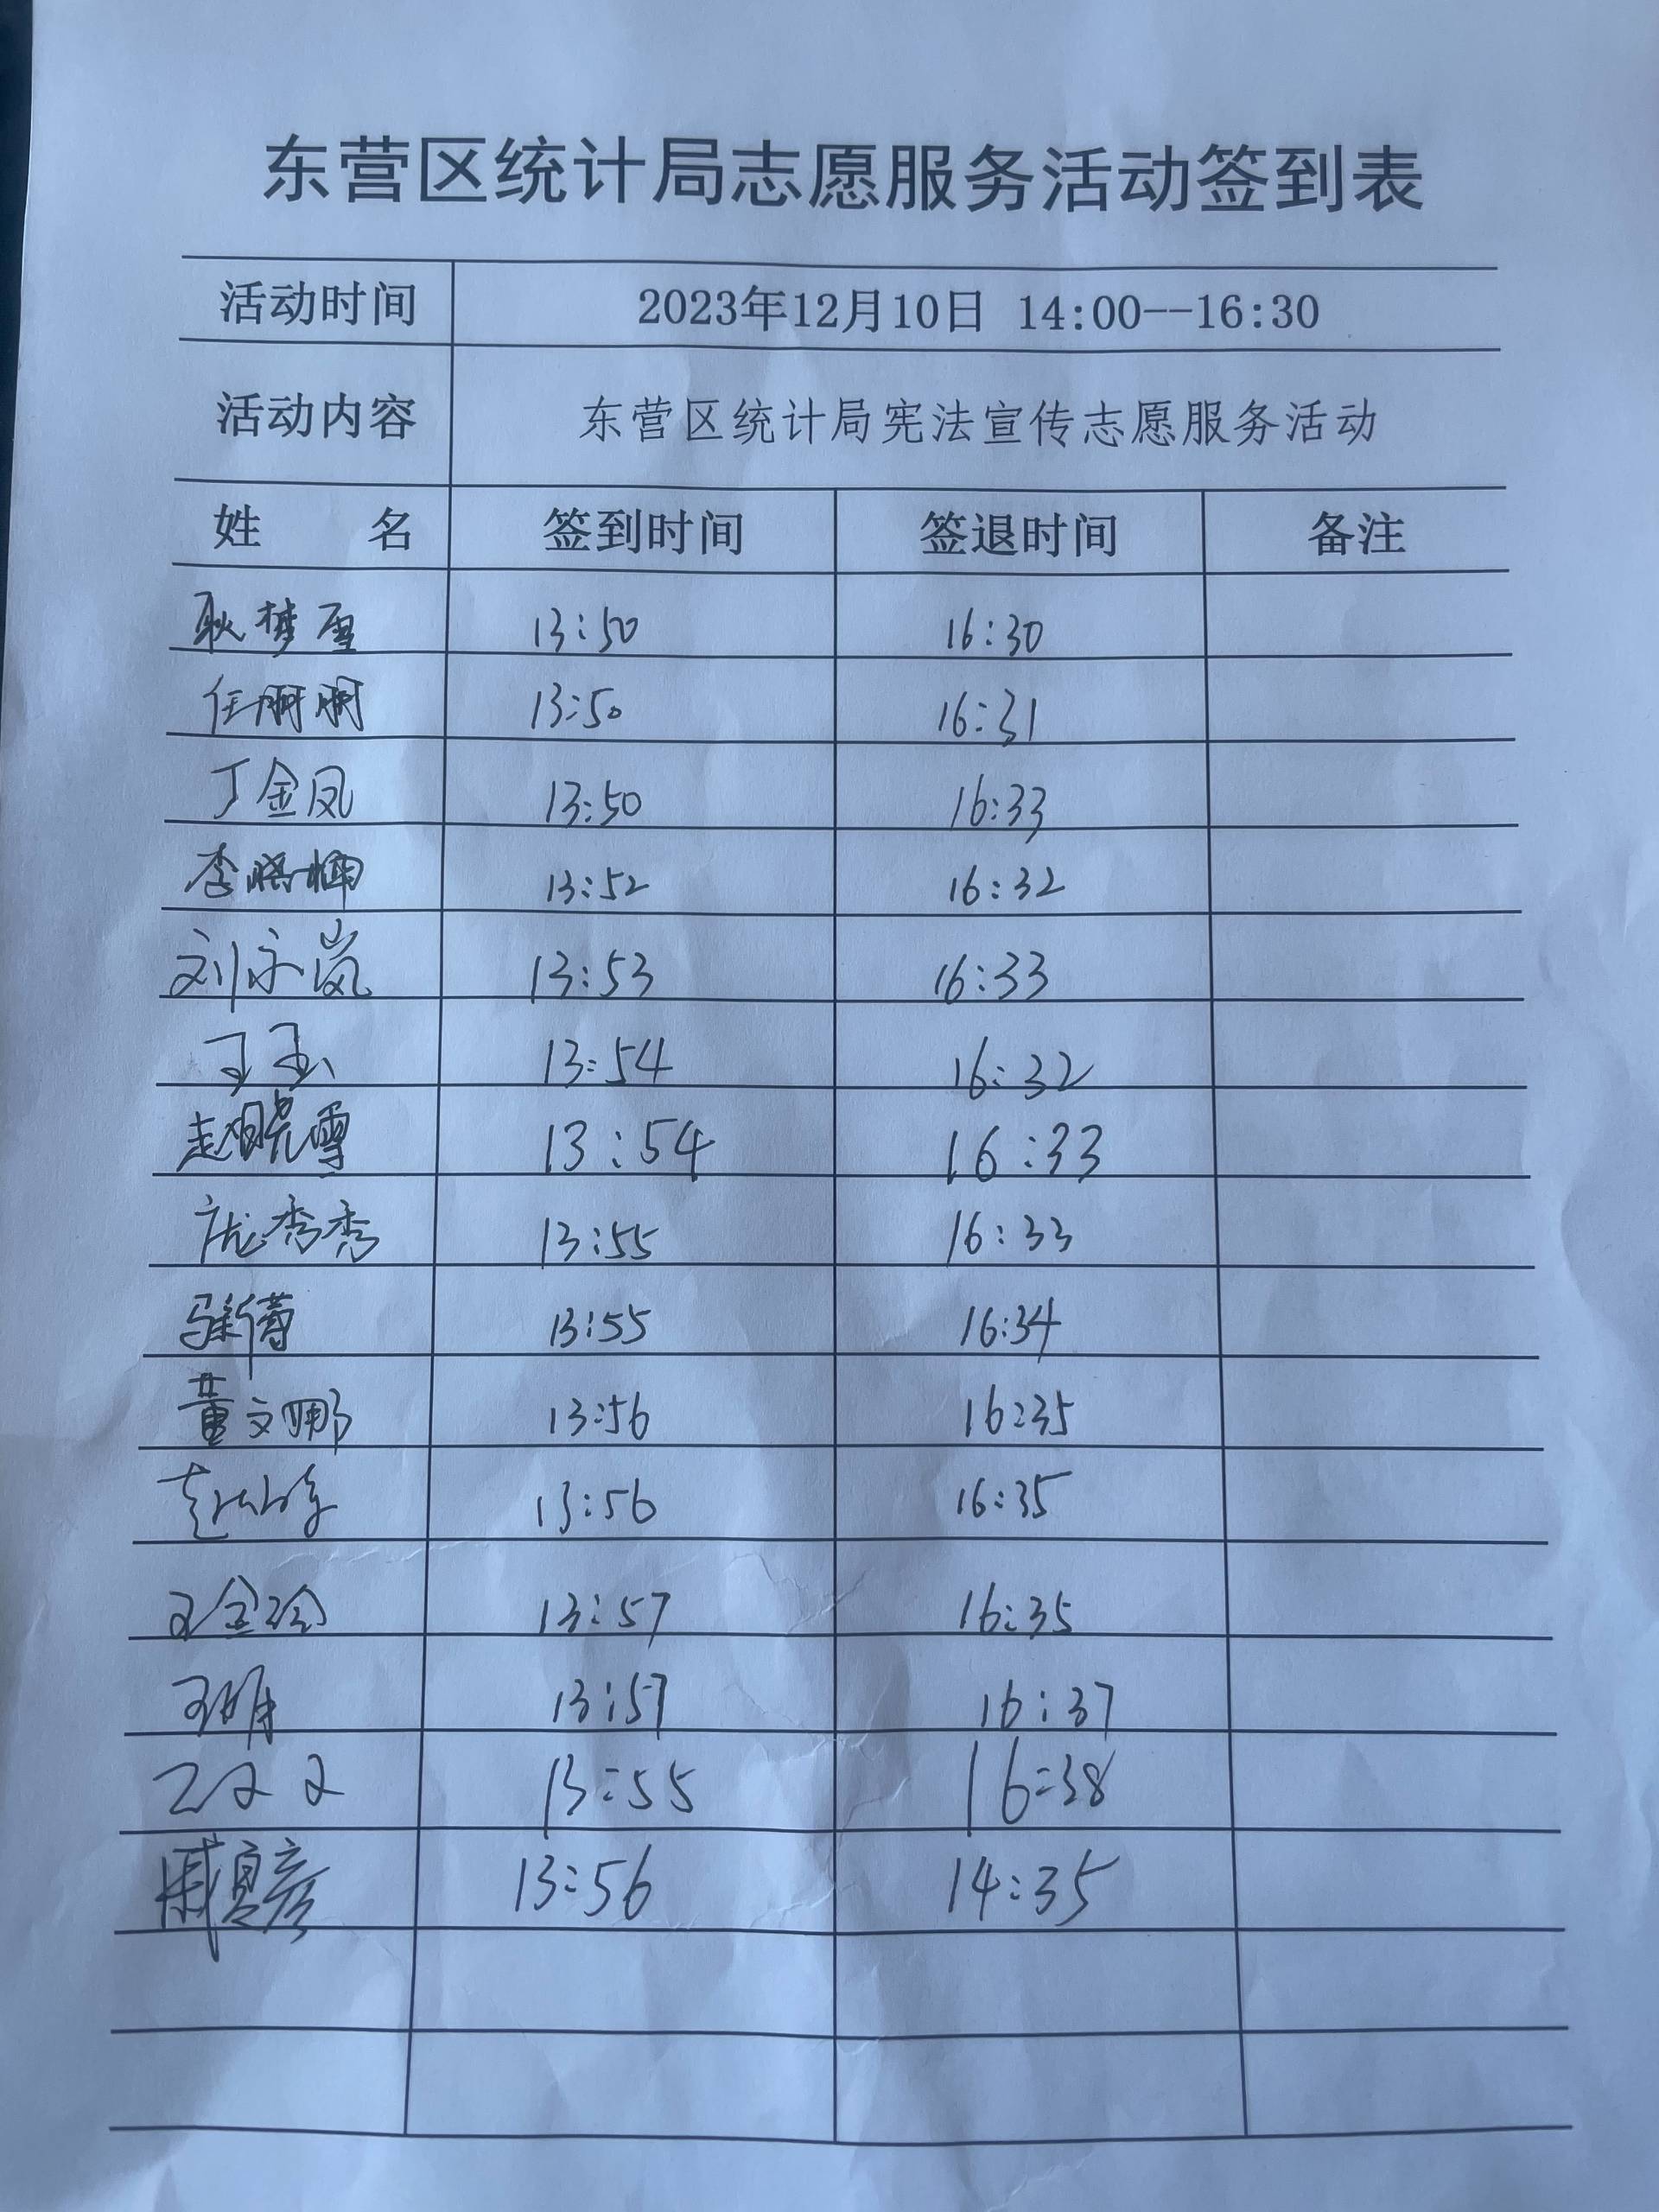 东营区统计局志愿服务活动签到表
活动时间 2023年12月10日 14:00--16:30
活动内容 东营区统计局宪法宣传志愿服务活动
姓 名 签到时间 签退时间 备注
耿梦雪 13:50 16:30
任丽丽 13:50 16:31
丁金凤 13:50 16:33
李 13:52 16:32
刘永岚 13:53 16:33
王玉 13:54 16:32
赵晓雪 13:54 16:33
庞秀秀 13:55 16:33
13:55 16:34
董文娜 13:56 16:35
赵 13:56 16:35
王金玲 13:57 16:35
王 13:57 16:37
13:55 16:38
戚夏彦 13:56 14:35